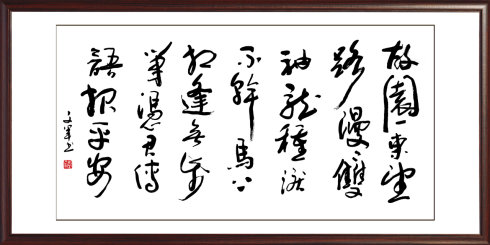 故園東望
路漫漫雙
袖龍種淚
不幹馬上
相逢無紙
筆憑君傳
語報平安